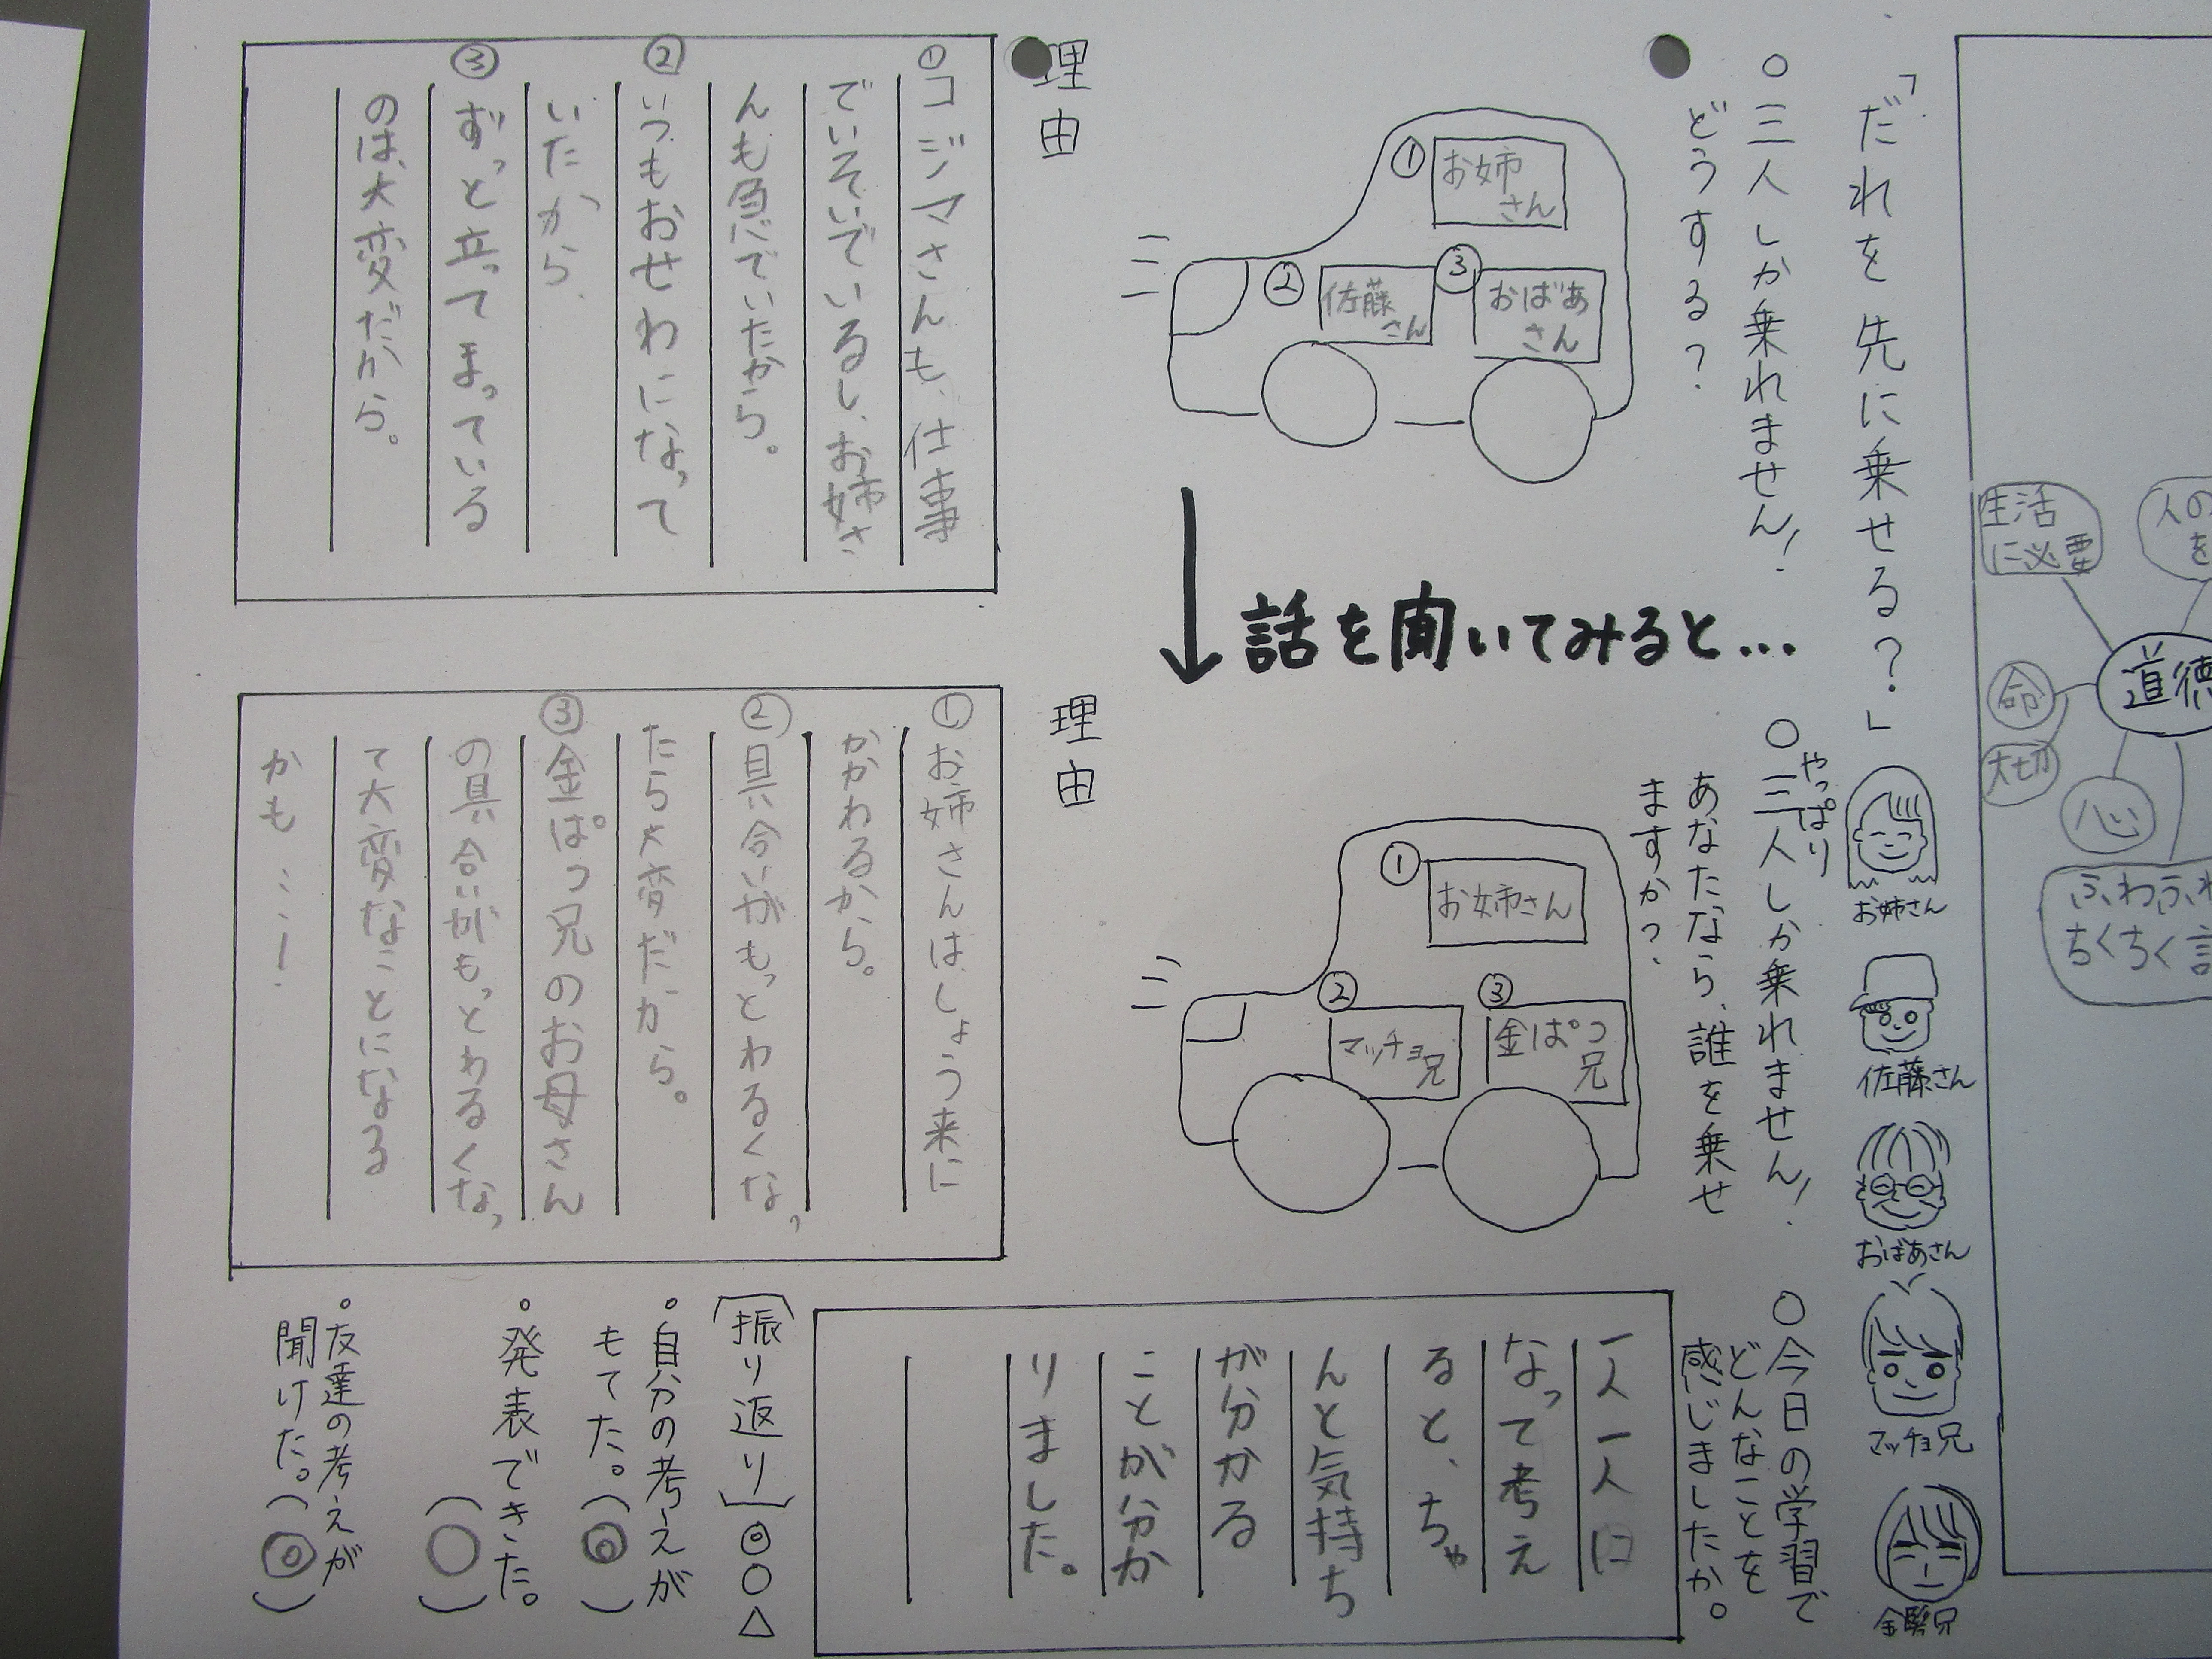 道徳
生活
に必要
命
大切
心
「だれを先に乗せる？」
お姉さん
佐藤さん
おばあさん
マッチョ兄
金髪兄
○三人しか乗れません！
どうする？
①
お姉
さん
②
佐藤
さん
③
おばあ
さん
理由
①コジマさんも、仕事
でいそいでいるし、お姉さ
んも急いでいたから。
②いつもおせわになって
いたから、
③ずっと立ってまっている
のは、大変だから。
話を聞いてみると…
○やっぱり三人しか乗れません！
あなたなら、誰を乗せ
ますか？
①
お姉さん
②
マッチョ
兄
③
金ぱつ
兄
理由
①お姉さんはしょう来に
かかわるから。
②具合いがもっとわるくなっ
たら大変だから。
③金ぱつ兄のお母さん
の具合いがもっとわるくなっ
て大変なことになる
かも…！
○今日の学習で
どんなことを
感じましたか。
一人一人に
なって考え
ると、ちゃ
んと気持ち
が分かる
ことが分か
りました。
〔振り返り〕◎○△
・自分の考えが
もてた。（◎）
・発表できた。
（○）
・友達の考えが
聞けた。（◎）